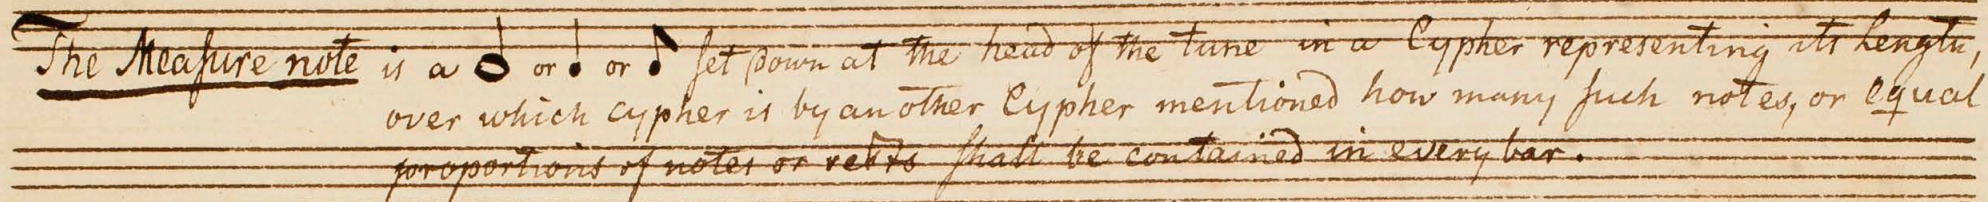 The Meaſure note is a 𝅗𝅥 or 𝅘𝅥 or 𝅘𝅥𝅮 ſet down at the head of the tune in a Cypher representing its length,
over which cypher is by an other Cypher mentioned how many ſuch notes, or equal
proportions of notes or ſhall be contained in every bar.